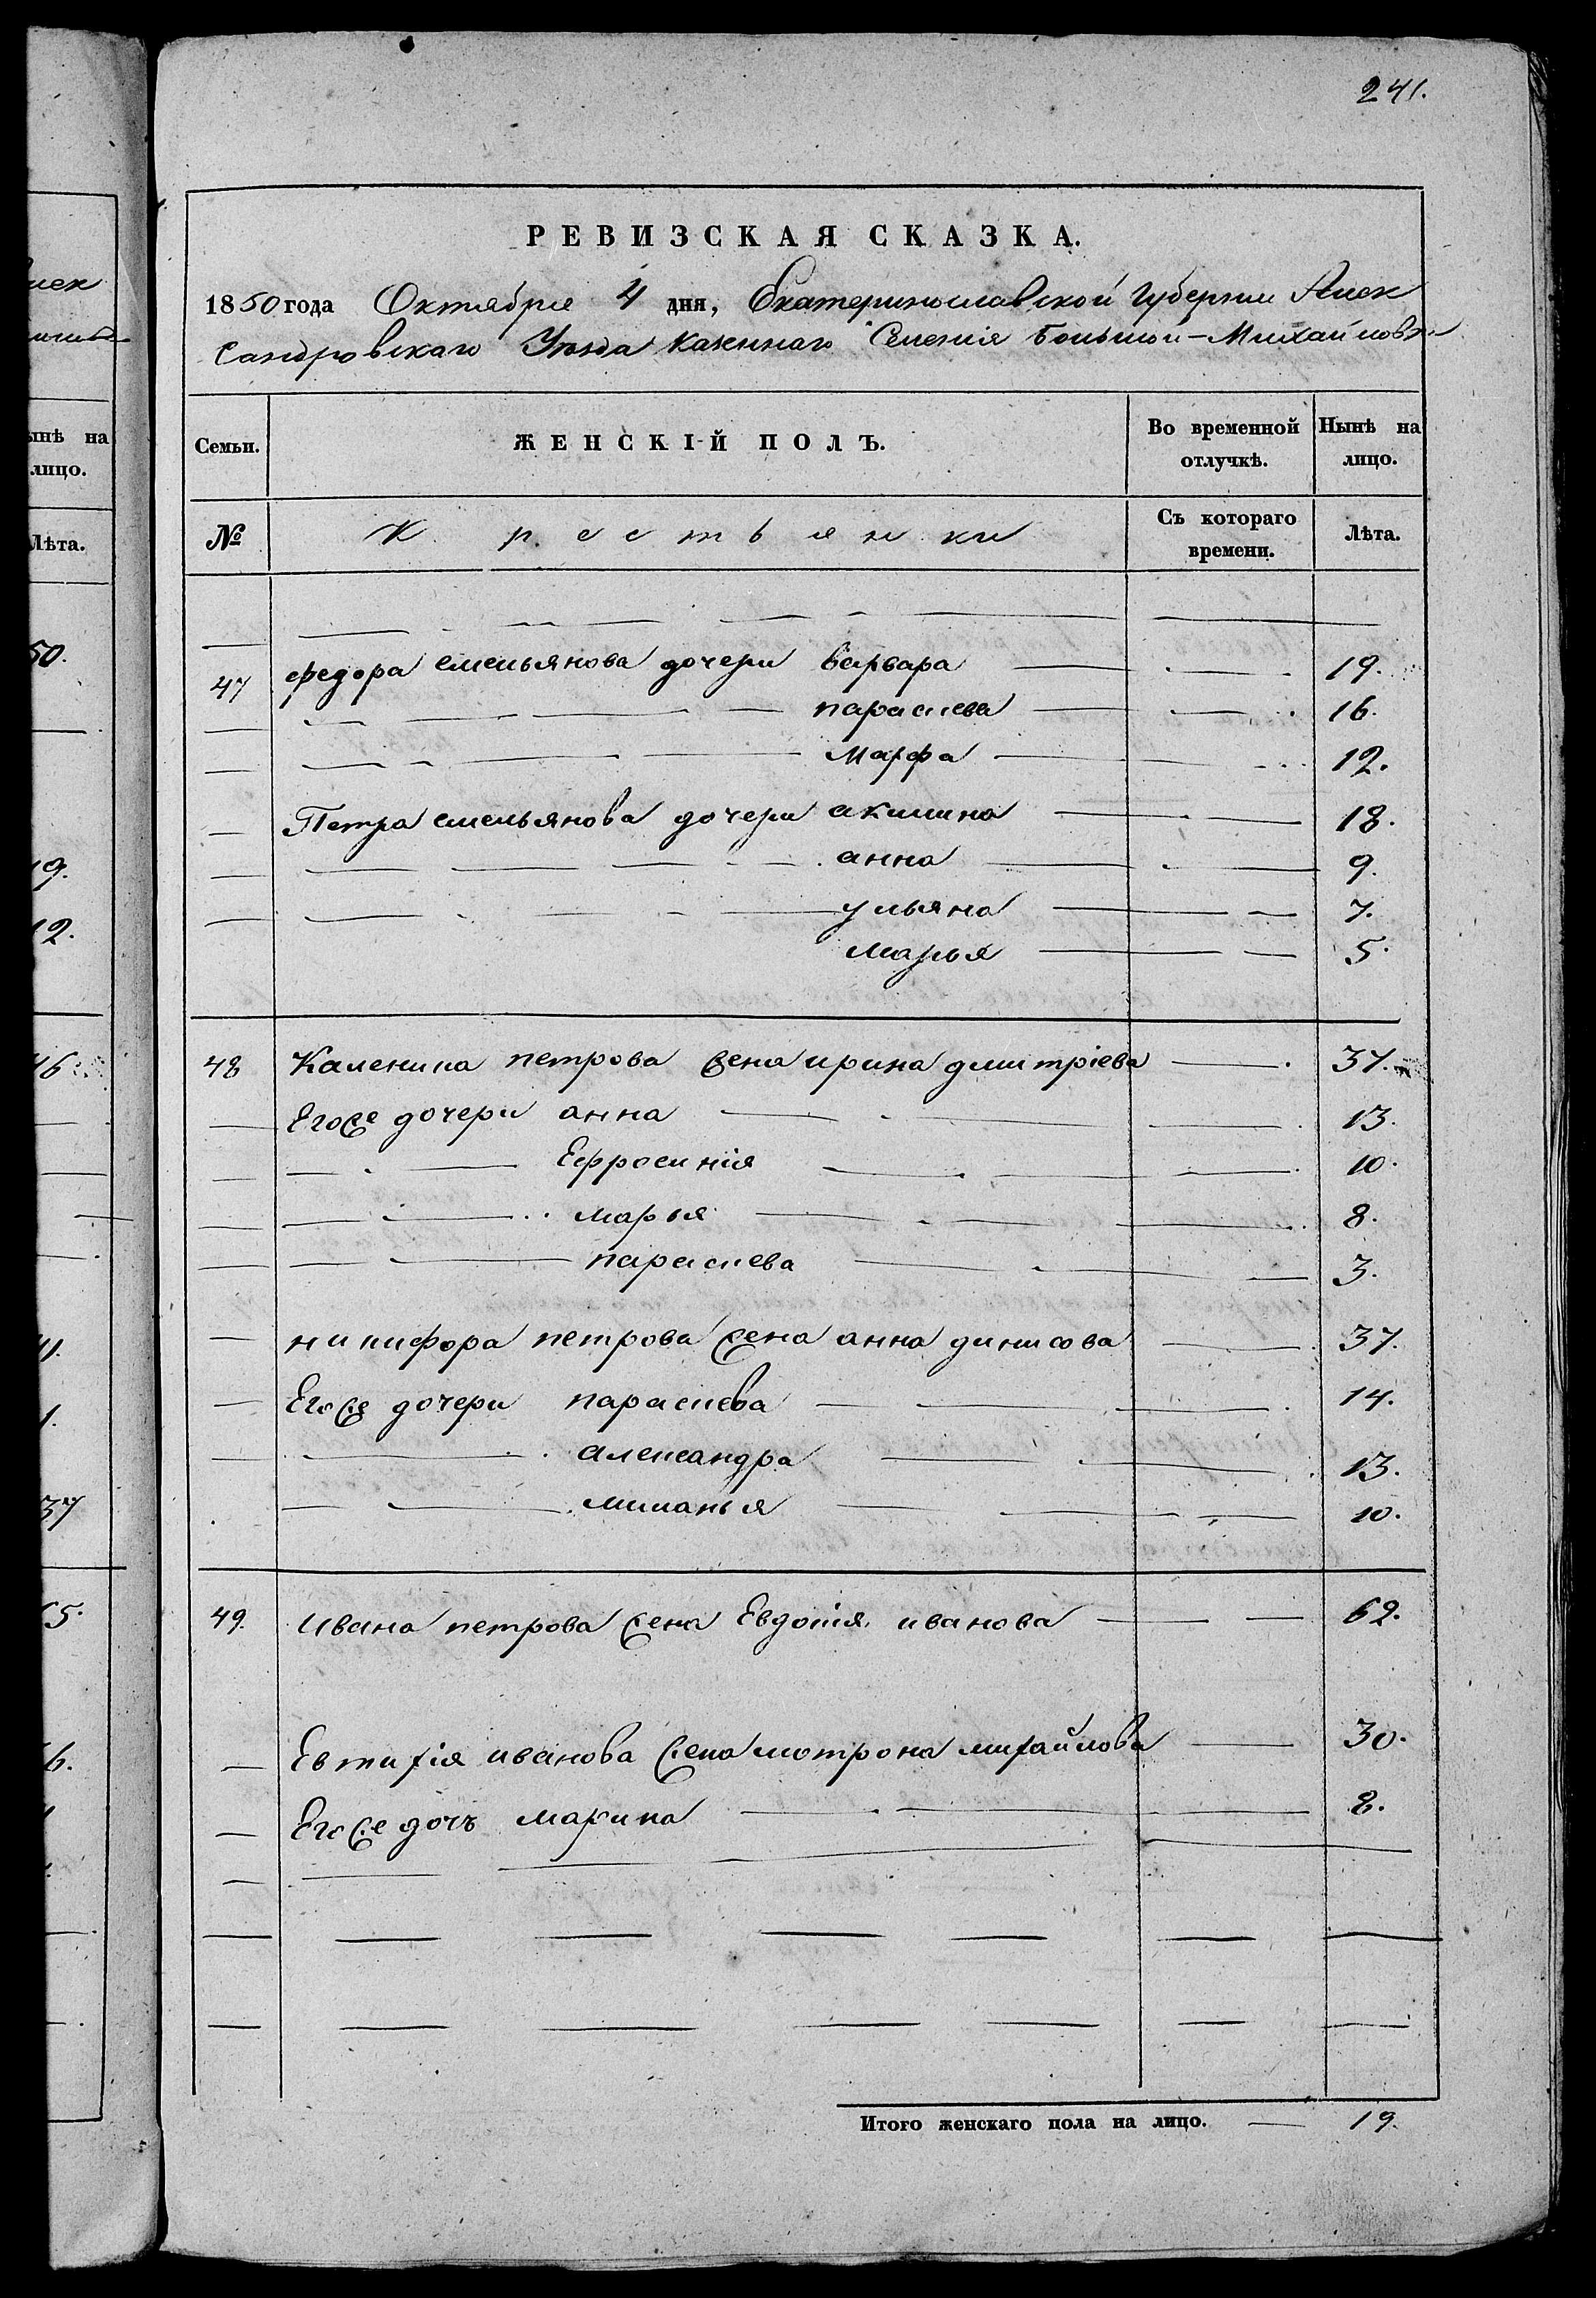 241.
РЕВИЗСКАЯ СКАЗКА.
1850 года Октября 4 дня, Екатеринославской Губернии Алек
сандровскаго Уѣзда Казеннаго Селенія Большой-Михайловки
Семьи. ЖЕНСКІЙ ПОЛЪ. Во временной отлучкѣ. Нынѣ на лицо.
№ Крестьянки Съ котораго времени. Лѣта.
47 федора емельянова дочери варвара 19.
параскева 16.
Марфа 12.
Петра емельянова дочери акилина 18.
анна 9.
ульяна 7.
марья 5.
48 Каленика петрова жена ирина дмитріева 37.
Егоже дочери анна 13.
Ефросинія 10.
марья 8.
параскева 3.
никифора петрова жена анна динисова 37.
Егоже дочери параскева 14.
александра 13.
миланья 10.
49. Ивана петрова жена Евдокія иванова 62.
Евтихія иванова жена мотрона михайлова 30.
Егоже дочь марина 8.
Итого женскаго пола на лицо. 19.
ынѣ на
лицо.
Лѣта.
50.
19.
12.
46
37